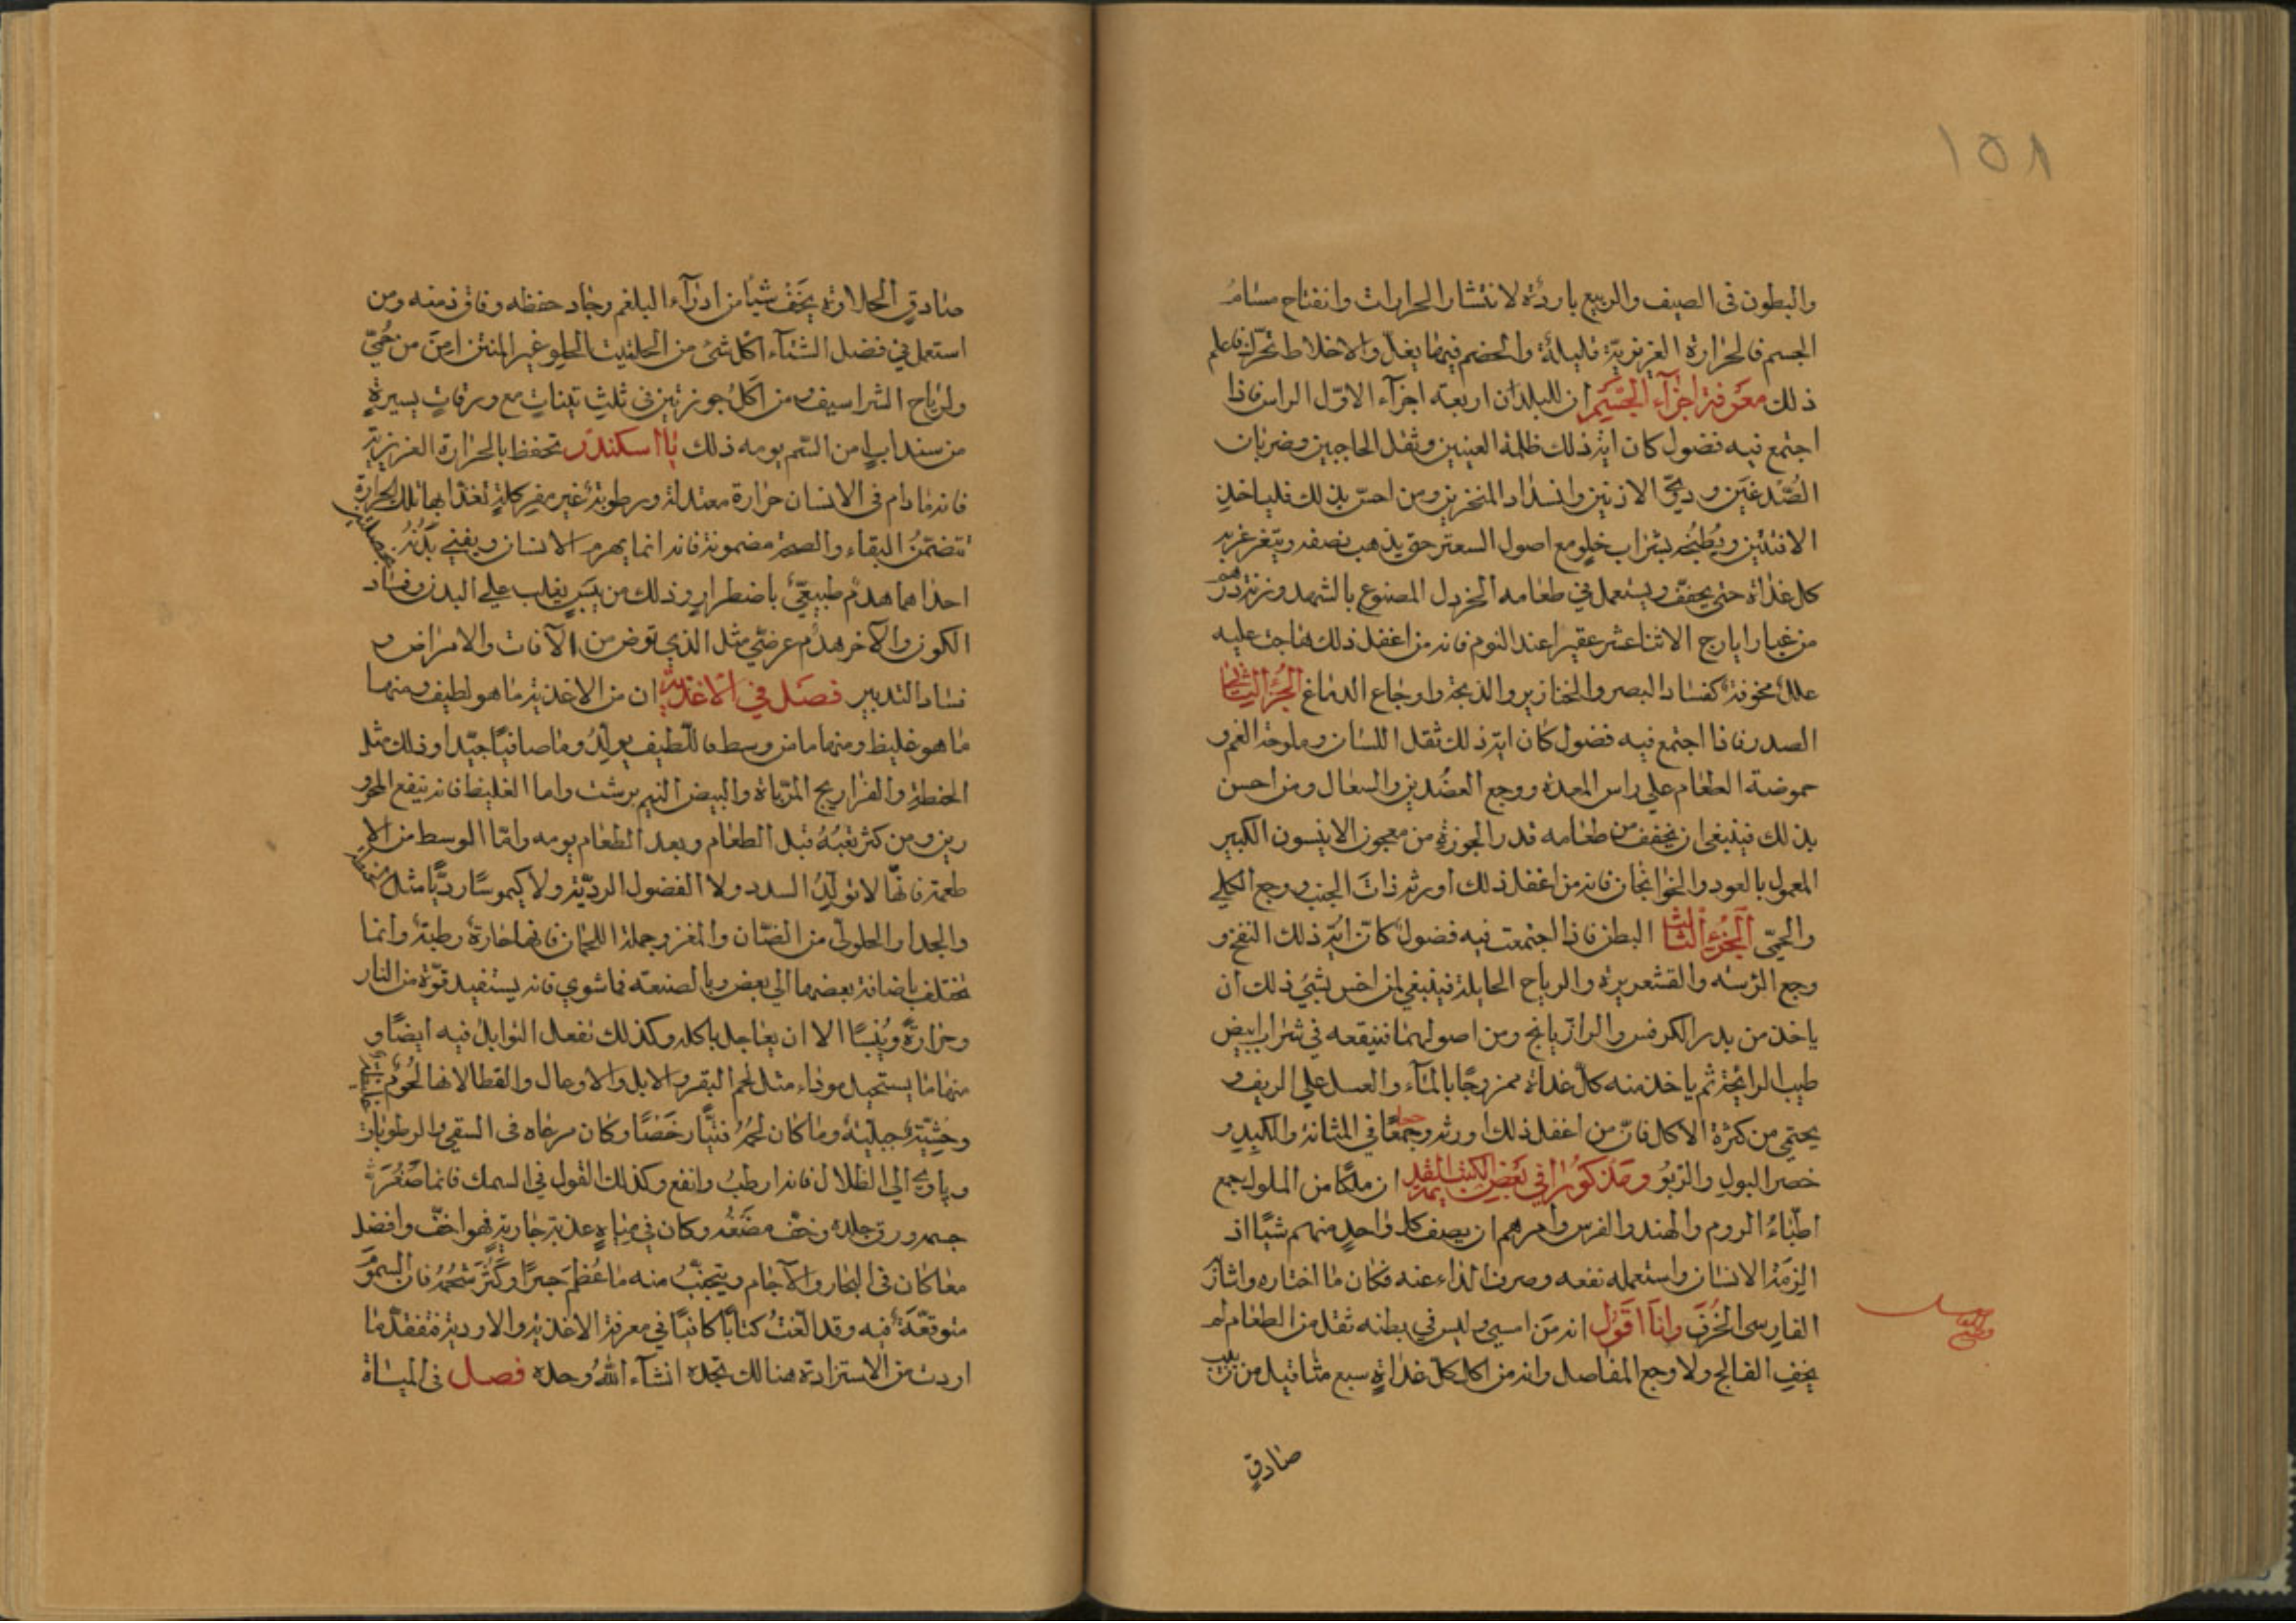 ١٥٨
والبطون فى الصيف والربيع باردة لانتشار الحرارات وانفتاح مسام
الجسم فالحرارة الغريزية قليلة والهضم فيها يقل والاخلاط تتحرك فاعلم
ذلك معرفة اجزآء الجسم ان للبدان اربعة اجزآء الاول الراس فاذا
اجتمع فيه فضول كان اية ذلك ظلمة العينين وثقل الحاجبين وضربان
الصدغين ودوي الاذنين وانسداد المنخرين ومن احس بذلك فلياخذ
الافسنتين ويطبخه بشراب حلو مع اصول السعتر حتى يذهب نصفه ويتغرغر به
كل غداة حتى يخفف ويستعمل في طعامه الخردل المصنوع بالشهد وزنة درهم
من غبار ايارج الاثنا عشر عقيرا عند النوم فانه من اغفل ذلك هاجت عليه
علل مخوفة كفساد البصر والخنازير والذبحة واوجاع الدماغ الجزء الثاني
الصدر فاذا اجتمع فيه فضول كان اية ذلك ثقل اللسان وملوحة الفم و
حموضة الطعام على راس المعدة ووجع العضدين والسعال ومن احسن
بذلك فينبغى ان يخفف من طعامه قدر الجوزة من معجون الانيسون الكبير
المعمول بالعود والخوانجان فانه من اغفل ذلك اورثه ذات الجنب ووجع الكلي
والحمى الجزء الثالث البطن فاذا اجتمعت فيه فضول كان اية ذلك النفخ و
وجع الركبة والقشعريرة والرياح الحايلة فينبغي لمن احس بشئ ذلك ان
ياخذ من بذر الكرفس والرازيانج ومن اصولهما فينقعه في شراب ابيض
طيب الرائحة ثم ياخذ منه كل غداة ممزوجا بالمآء والعسل على الريف و
يحتمي من كثرة الاكل فان من اغفل ذلك اورثه وجعا في المثانة والكبد و
حصر البول والربو ومذكورا في بعض الكتب القديمة ان ملكا من الملوك جمع
اطباء الروم والهند والفرس وامرهم ان يصف كل واحد منهم شيا اذ
الزمه الانسان واستعمله نفعه وصرف الداء عنه فكان ما اختاره واشار
الفارسى الحرف وانا اقول انه من امسى وليس في بطنه ثقل من الطعام لم
يخف الفالج ولا وجع المفاصل وانه من اكل كل غداة سبع مثاقيل من زبيب
صادق
صادق الحلاوة لم يخف شيا من ادوآء البلغم وجاد حفظه وفاق ذهنه ومن
استعمل في فضل الشتآء اكل شئ من الحلتيت الحلو غير المنتن امن من حمي
ولرياح الشراسيف ومن اكل جوزتين في ثلث تينات مع ورقات يسيرة
من سنداب امن السم يومه ذلك يا اسكندر تحفظ بالحرارة الغريزية
فانه ما دام فى الانسان حرارة معتدلة ورطوبة غير مفركلة تغذا بها تلك الحرارة
تتضمن البقاء والصحة مضمونة فانه انما يهرم الانسان ويفني بدنه
احداهما هدم طبيعي باضطرار وذلك من يبس يغلب على البدن وفساد
الكون والآخر هدم عرضي مثل الذي توض من الآفات والامراض و
فساد التدبير فصل في الاغذية ان من الاغذية ما هو لطيف ومنها
ما هو غليظ ومنها ما هو وسط فاللطيف يولد دما صافيا جيدا وذلك مثل
الحنطة والفراريج المرباة والبيض النيم برشت واما الغليظ فانه ينفع المحرو
رين ومن كثر تعبه قبل الطعام وبعد الطعام يومه واما الوسط من الا
طعمة فانها لا تولد السدد ولا الفضول الردية ولا كيموسا رديا مثل
والجدا والحلولى من الضان والمغز وجملة اللحمان فانها حارة رطبة وانما
تختلف باضافة بعضها الي بعض وبالصنعة فما شوي فانه يستفيد قوة من النار
وحرارة ويبسا الا ان يعاجل باكله وكذلك تفعل التوابل فيه ايضا و
منها ما يستحيل سوداء مثل لحم البقر والابل والاوعال والقطا لانها لحوم
وحشية جبلية وما كان لحمه فتيا رخصا وكان مرعاه فى السقي والرطوبات
وياوي الي الظلال فانه ارطب وانفع وكذلك القول في السمك فانما صغر
جسمه ورق جلده وخف مضغه وكان في مياه عذبة جارية فهو اخف وافضل
مما كان في البحار والآجام ويتجنب منه ما عظم جسرا وكثر شحمه فان السمو
متوقعة فيه وقد الفت كتابا كافيا في معرفة الاغذية والادوية فتفقد ما
اردت من الاستزادة هنالك تجده انشآء الله وحده فصل فى المياة